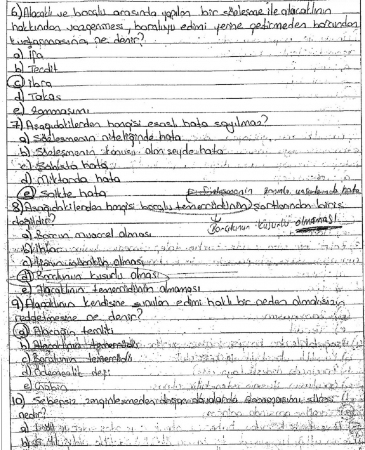 6) Alacaklı ve borçlu arasında yapılan bir sözleşme ile alacaklının
hakkından vazgeçmesi, borçluyu edimi yerine getirmeden borcundan
kurtarmasına ne denir?
a) İfa
b) Tecdit
c) İbra
d) Takas
e)
7) Aşağıdakilerden hangisi esaslı hata sayılmaz?
a) Sözleşmenin niteliğinde hata
b) Sözleşmenin konusu olan şeyde hata
c) Şahısta hata
d) Miktarda hata
e) Saikte hata
8) Aşağıdakilerden hangisi borçlu temerrüdünün şartlarından birisi
değildir?
Borçlunun kusurlu olmaması
a) Borcun muaccel olması
b) İhtar
c) olması
d) Borçlunun kusurlu olması
e) Alacaklının temerrüdünün olmaması
9) Alacaklının kendisine sunulan edimi haklı bir neden olmaksızın
reddetmesine ne denir?
a) Alacağın temliki
b) Alacaklının temerrüdü
c) Borçlunun temerrüdü
d) Ödemezlik defi
e)
10) Sebepsiz zenginleşmeden doğan davalarda zamanaşımı süresi
nedir?
a)
b)